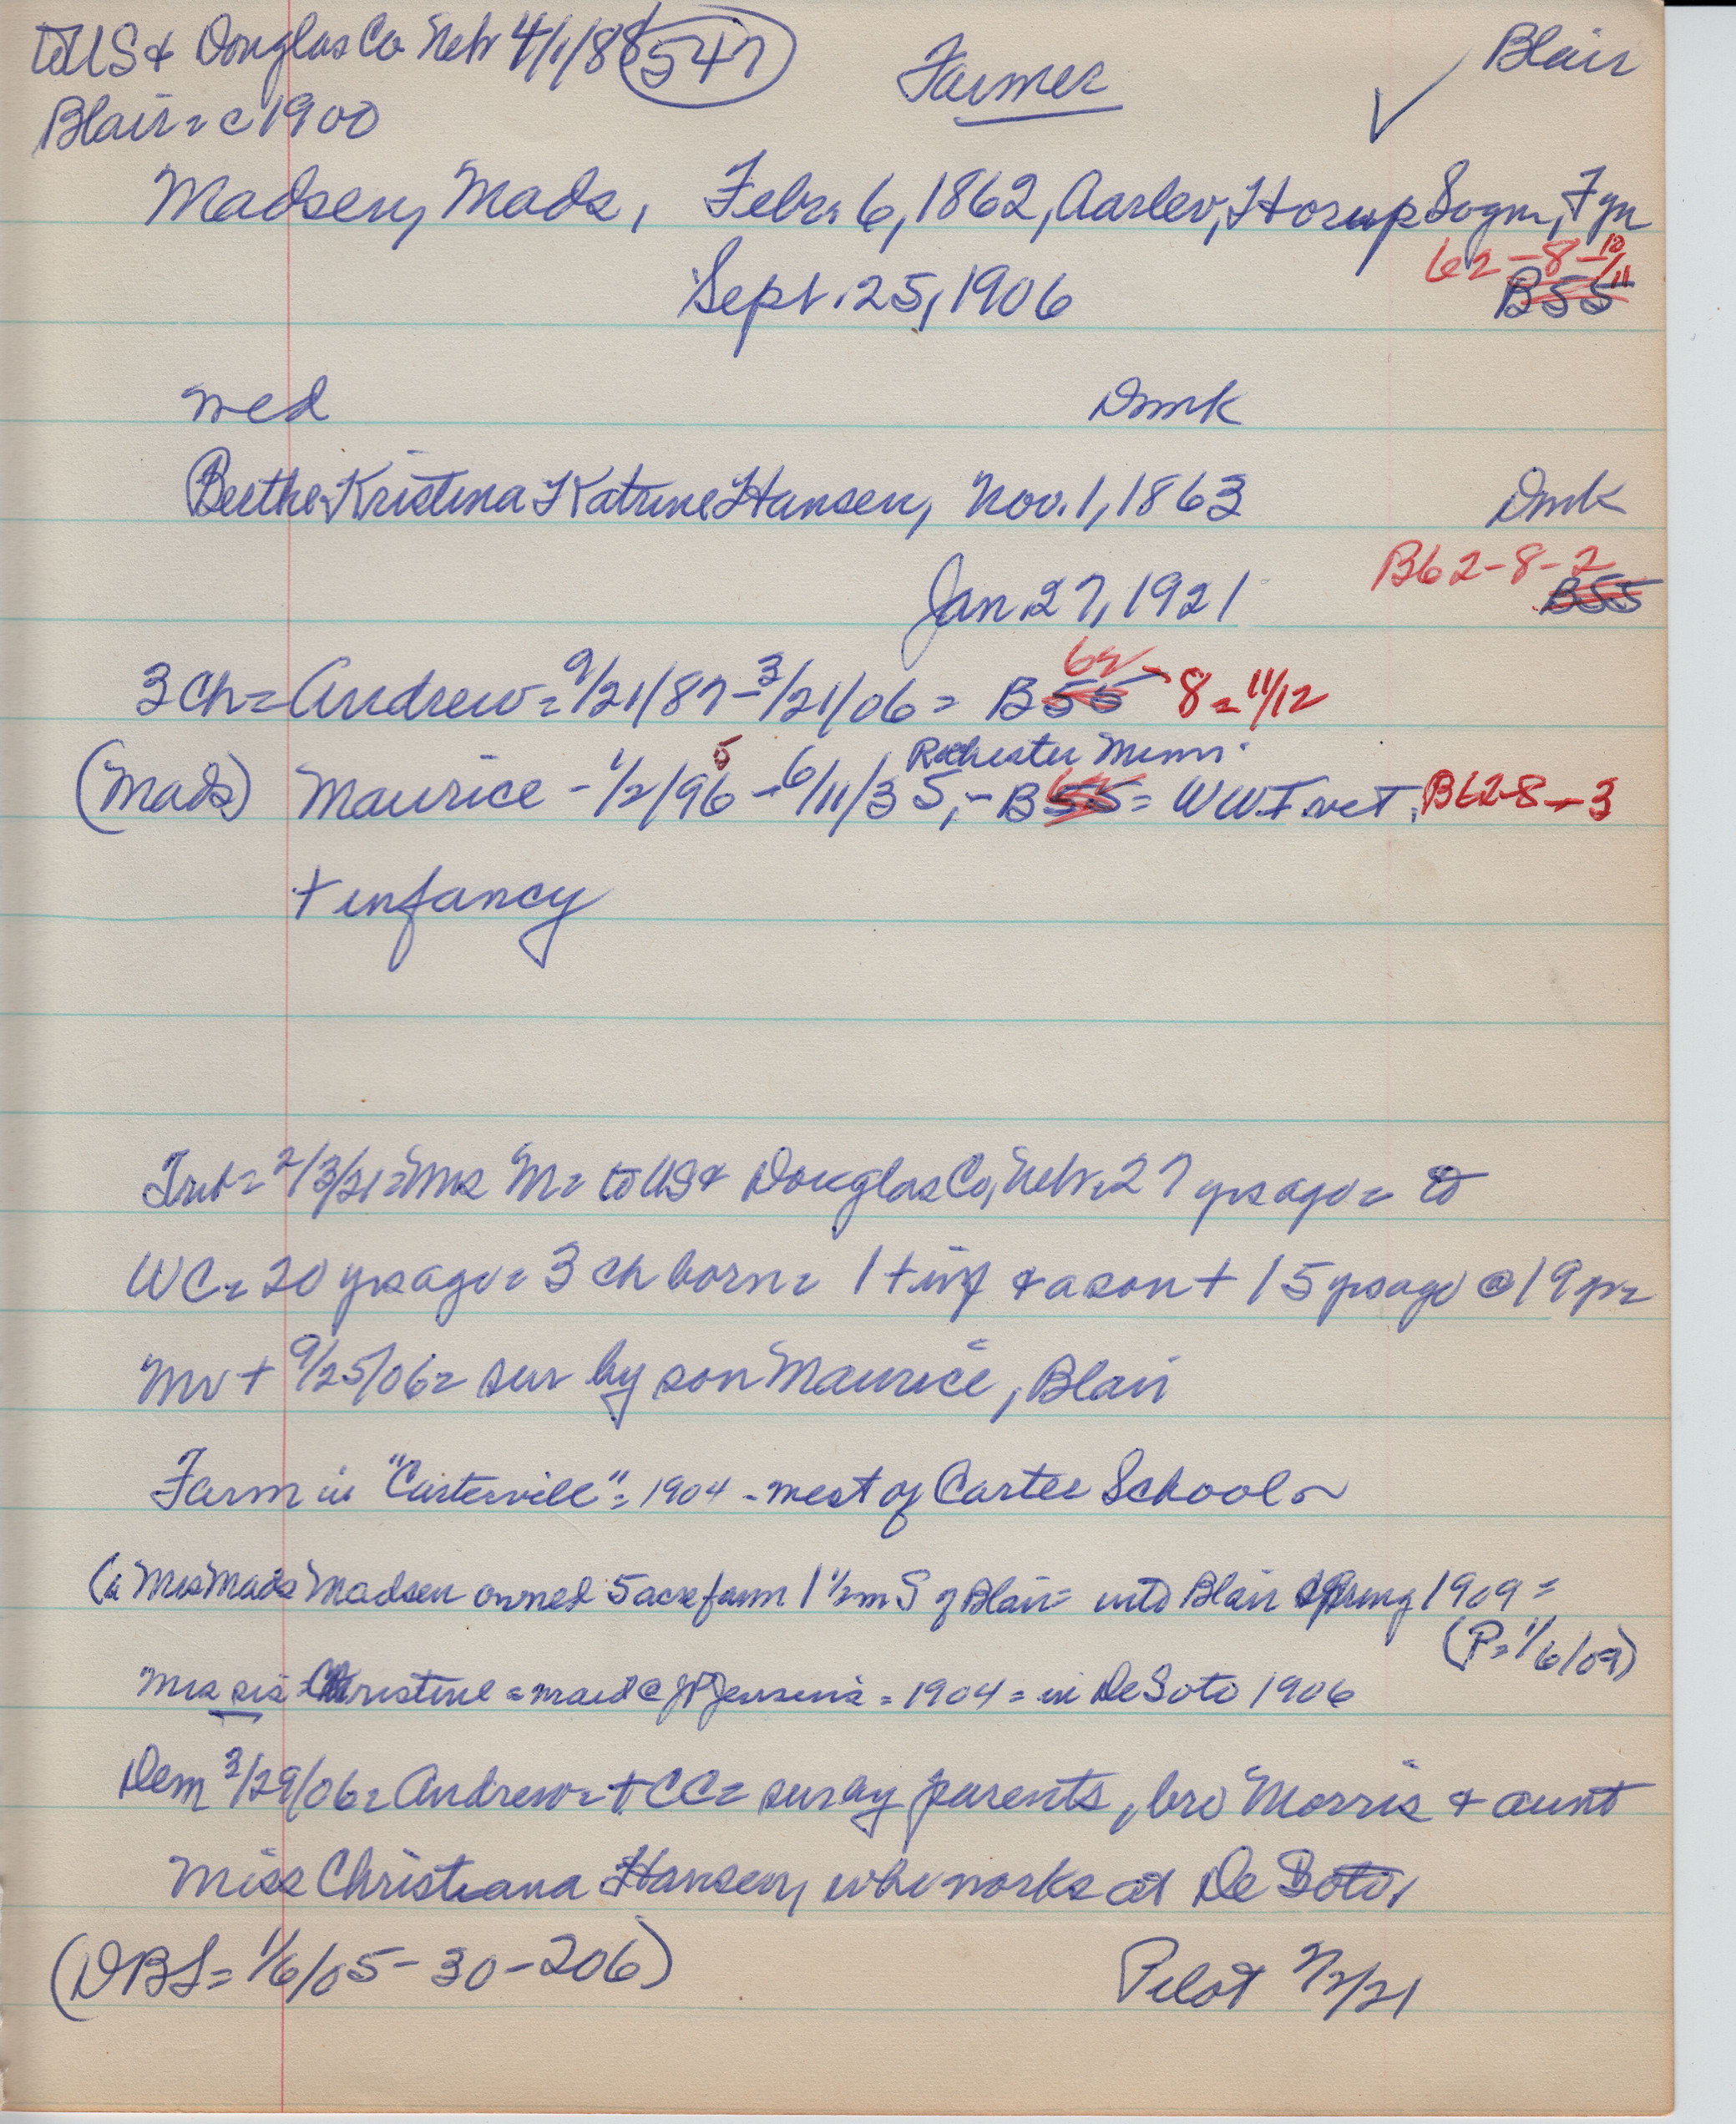 to US & Douglas Co Neb 4/1/88 547 Farmer Blair
Blair = c 1900 ✓
Madsen, Mads, Febr. 6, 1862, Aarlev, Horup Sogn, Fyn
62-8-12/11
Sept. 25, 1906 B55
wed Dmk
Beethe Kristina Katrine Hansen, Nov. 1, 1863 Dmk
B62-8-2
Jan 27, 1921 B55
62-
3 ch = Andrew = 9/21/87 - 3/21/06 = B 55 8 = 11/12
5 Rochester Minn.
(Mads) Maurice - 1/2/96 - 6/11/35, - B55 = WW I vet, B62-8-3
+ infancy
Trib = 2/3/21 = Mrs M = to US & Douglas Co, Neb = 27 yrs ago = to
WC = 20 yrs ago = 3 ch born = 1 + inf & a son + 15 yrs ago @ 19 yr =
Mr + 9/25/06 = sur by son Maurice, Blair
Farm in "Carterville" = 1904 - west of Carter School ~
(a Mrs Mads Madsen owned 5 acre farm 1 1/2 m S of Blair = into Blair spring 1909 =
(P = 1/6/09)
Mrs sis = Christine = maid @ JP Jensens = 1904 = in De Soto 1906
Dem 3/29/06 = Andrew = + CC = sur by parents, bro Morris & aunt
Miss Christiana Hansen, who works at De Soto,
(DBS = 1/6/05 - 30 - 206) Pilot 2/2/21